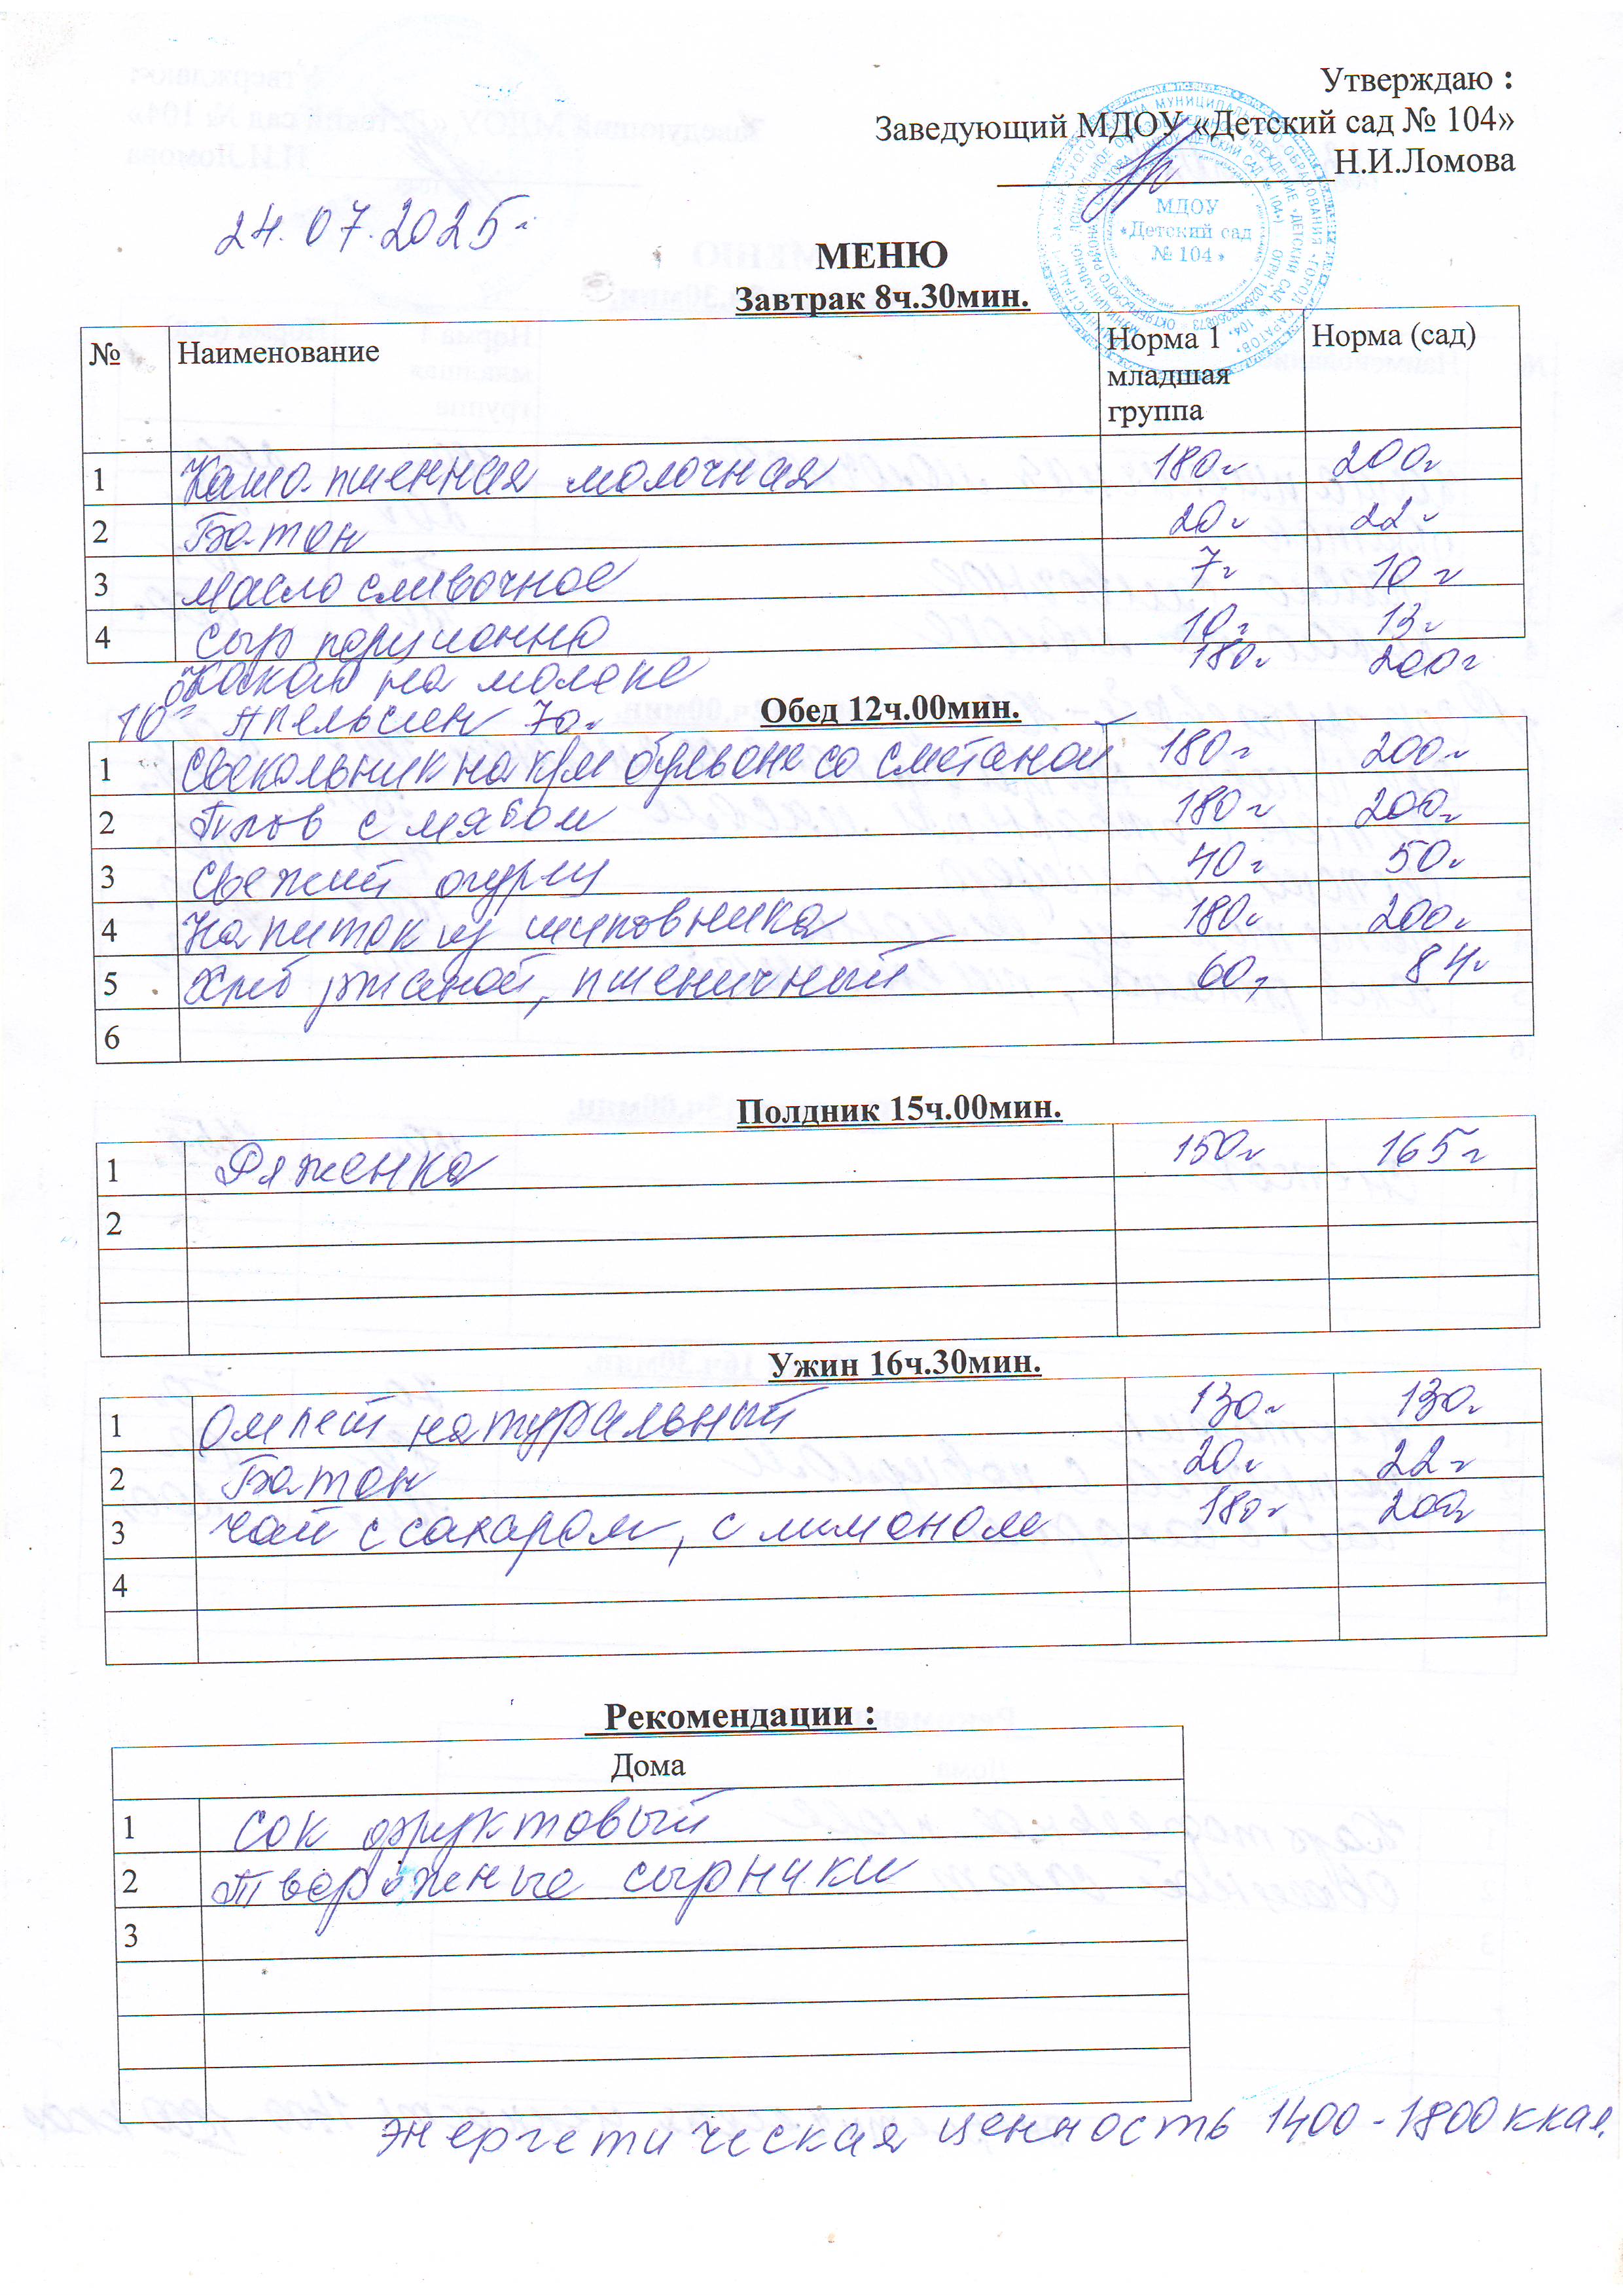 Утверждаю :
Заведующий МДОУ «Детский сад № 104»
Н.И.Ломова
МДОУ
«Детский сад
№ 104»
24.07.2025г
МЕНЮ
Завтрак 8ч.30мин.
№ Наименование Норма 1 младшая группа Норма (сад)
1 Каша пшенная молочная 180г 200г
2 Батон 20г 22г
3 масло сливочное 7г 10г
4 сыр порционно 10г 13г
какао на молоке 180г 200г
10 Апельсин 70г
Обед 12ч.00мин.
1 Свекольник на кур бульоне со сметаной 180г 200г
2 Плов с мясом 180г 200г
3 Свежий огурец 40г 50г
4 Напиток из шиповника 180г 200г
5 Хлеб ржаной, пшеничный 60г 84г
6
Полдник 15ч.00мин.
1 Ряженка 150г 165г
2
Ужин 16ч.30мин.
1 Омлет натуральный 130г 130г
2 Батон 20г 22г
3 чай с сахаром, с лимоном 180г 200г
4
Рекомендации :
Дома
1 сок фруктовый
2 Творожные сырники
3
Энергетическая ценность 1400-1800 ккал.